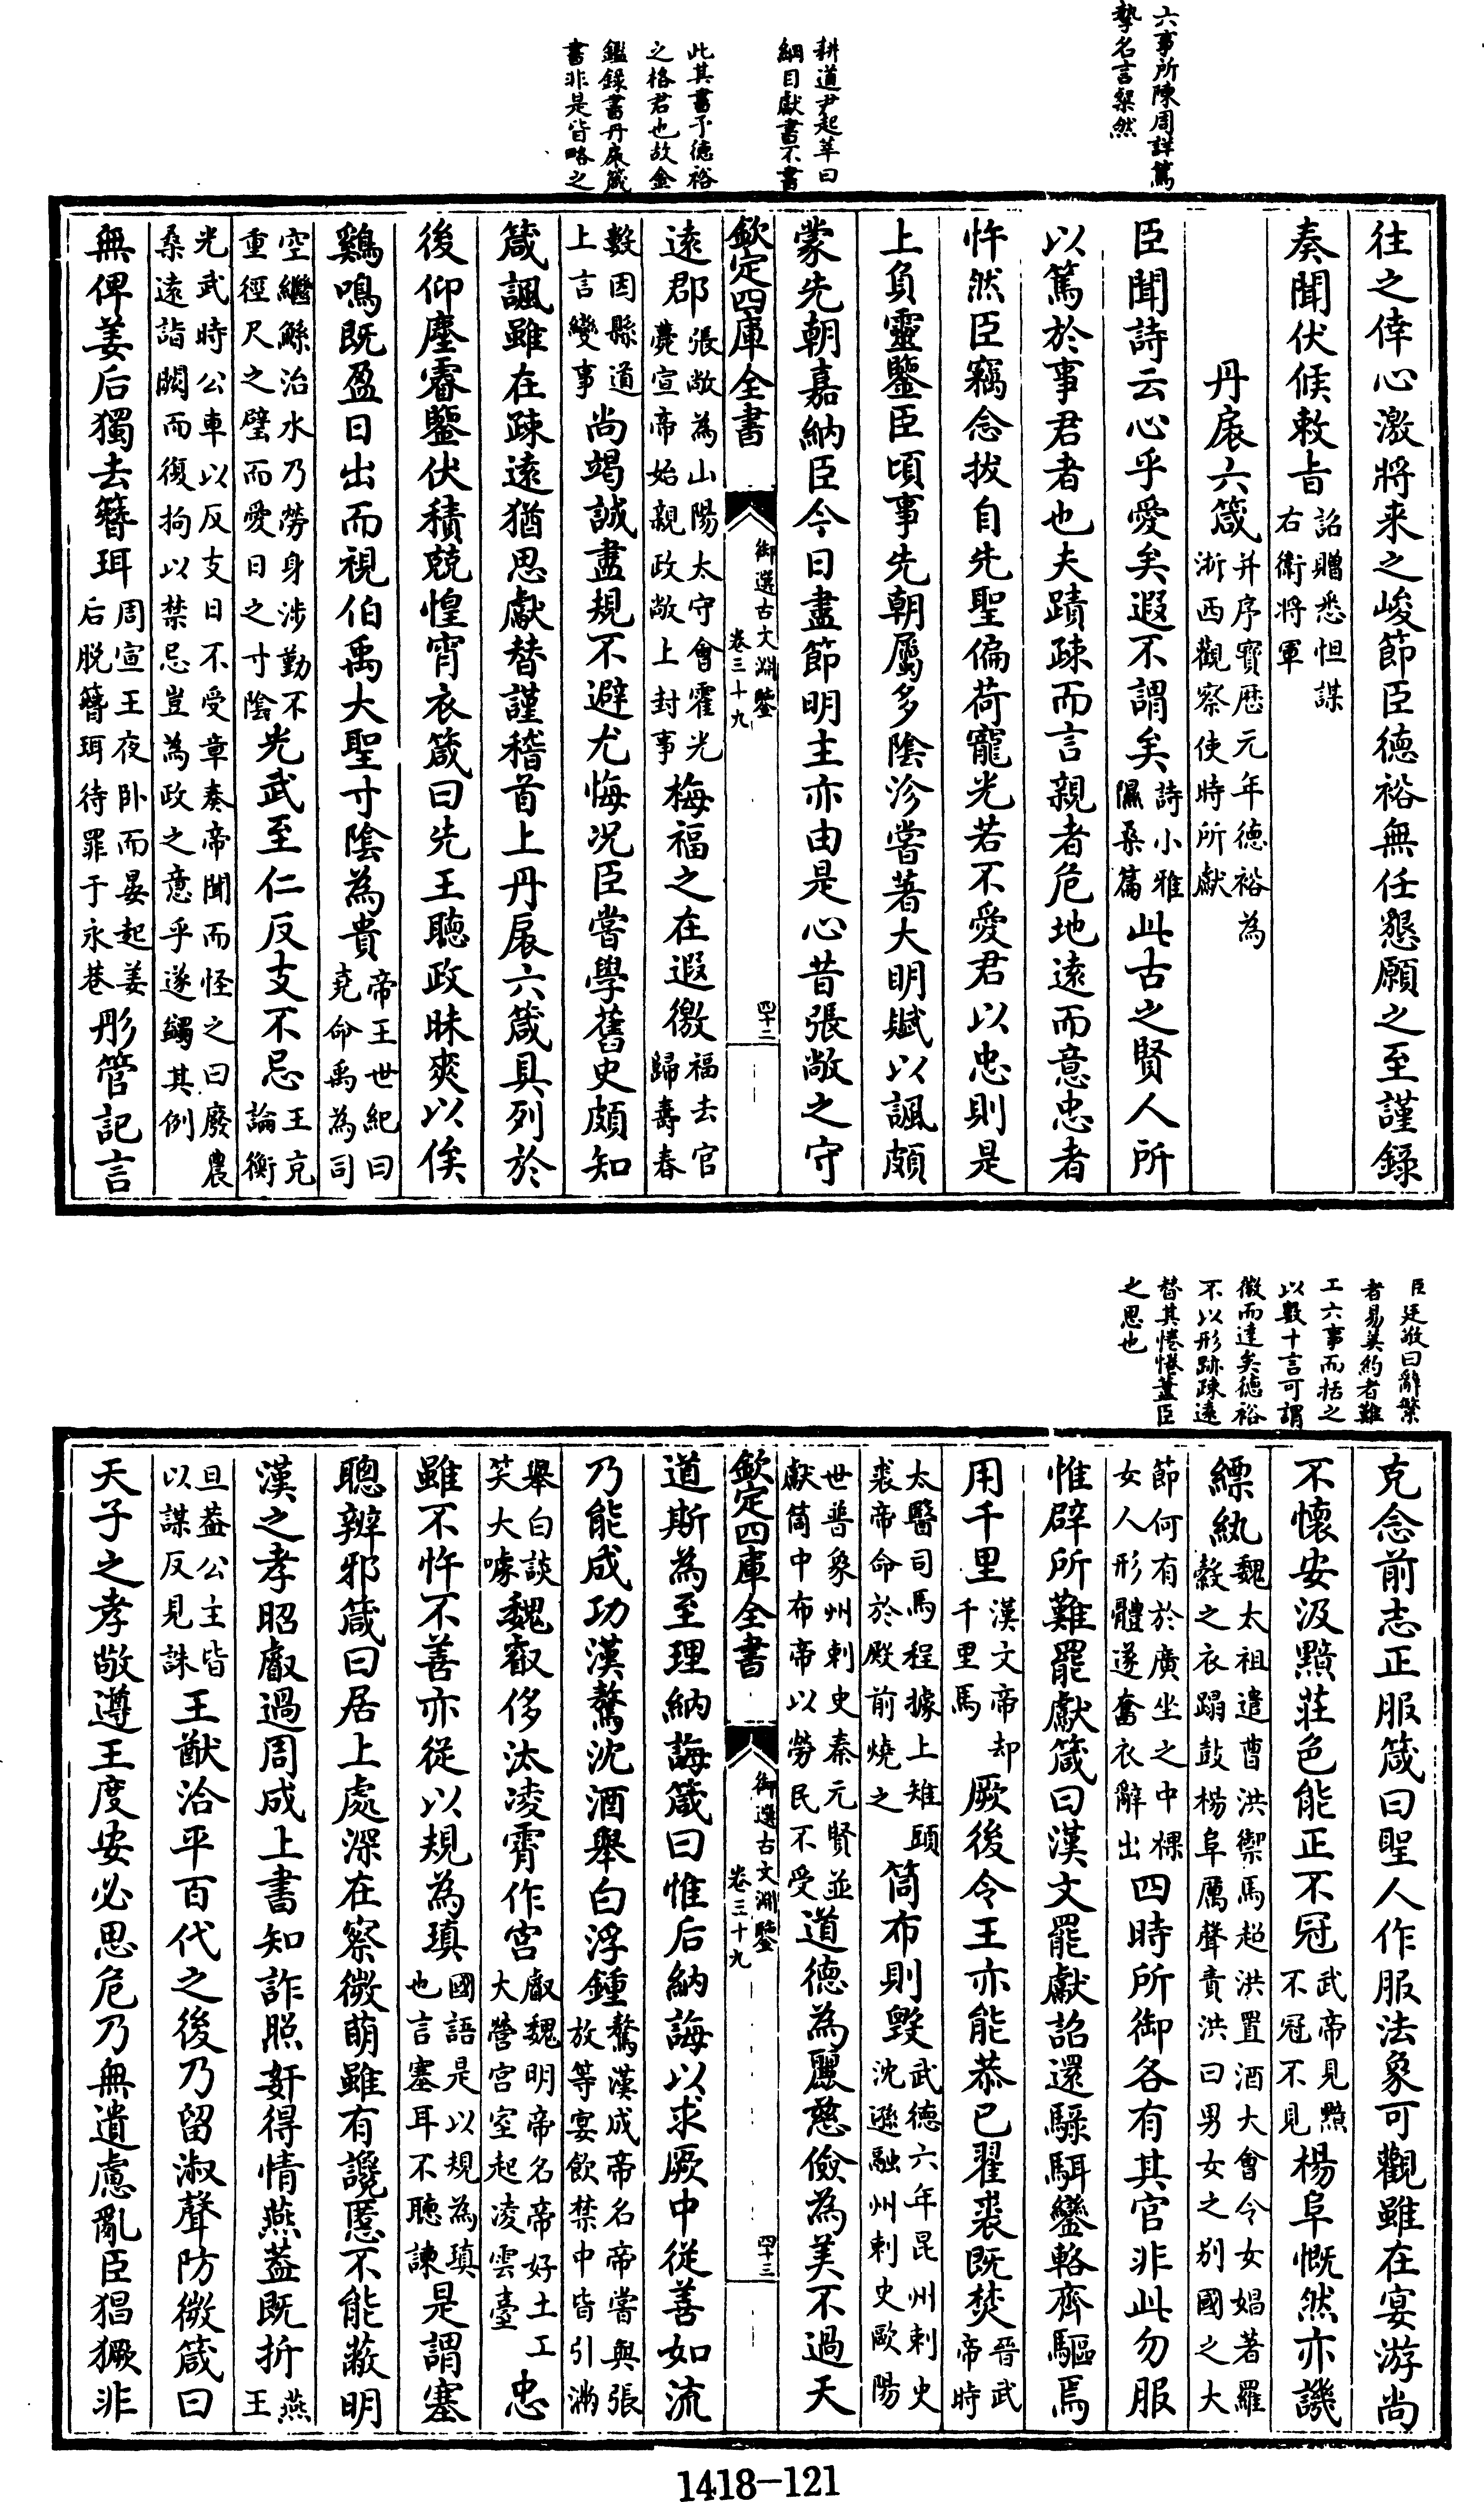 六事所陳周詳篤
摯名言粲然
耕道尹起莘曰
綱目獻書不書
此其書予德裕
之格君也故金
鑑録書丹扆箴
書非是皆略之
往之倖心激將来之峻節臣徳裕無任懇願之至謹録
奏聞伏候敕旨詔贈悉怛謀右衛將軍
丹扆六箴并序寳歴元年德裕為浙西觀察使時所獻
臣聞詩云心乎愛矣遐不謂矣詩小雅隰桑篇此古之賢人所
以篤於事君者也夫蹟疎而言親者危地遠而意忠者
忤然臣竊念拔自先聖偏荷寵光若不愛君以忠則是
上負靈鑒臣頃事先朝屬多陰沴嘗著大明賦以諷頗
蒙先朝嘉納臣今日盡節明主亦由是心昔張敞之守
欽定四庫全書
御選古文淵鑒
卷三十九
四十二
遠郡張敞為山陽太守會霍光薨宣帝始親政敞上封事梅福之在遐徼福去官歸壽春
數因縣道上言變事尚竭誠盡規不避尤悔况臣嘗學舊史頗知
箴諷雖在疎遠猶思獻替謹稽首上丹扆六箴具列於
後仰塵睿鑒伏積兢惶宵衣箴曰先王聽政昧爽以俟
鷄鳴既盈日出而視伯禹大聖寸陰為貴帝王世紀曰堯命禹為司
空繼鯀治水乃勞身涉勤不重徑尺之璧而愛日之寸隂光武至仁反支不忌王充論衡
光武時公車以反支日不受章奏帝聞而怪之曰廢農桑遠詣闕而復拘以禁忌豈為政之意乎遂蠲其例
無俾姜后獨去簪珥周宣王夜卧而晏起姜后脱簪珥待罪于永巷彤管記言
臣廷敬曰辭繁
者易美約者難
工六事而括之
以數十言可謂
微而達矣德裕
不以形跡疎遠
替其惓惓藎臣
之思也
克念前志正服箴曰聖人作服法象可觀雖在宴游尚
不懷安汲黯莊色能正不冠武帝見黯不冠不見楊阜慨然亦譏
縹紈魏太祖遣曹洪禦馬超洪置酒大會令女娼著羅縠之衣蹋鼓楊阜厲聲責洪曰男女之别國之大
節何有於廣坐之中裸女人形體遂奮衣辭出四時所御各有其官非此勿服
惟辟所難罷獻箴曰漢文罷獻詔還騄駬鑾輅齊驅焉
用千里漢文帝却千里馬厥後令王亦能恭已翟裘既焚晉武帝時
太醫司馬程據上雉頭裘帝命於殿前燒之筒布則毀武德六年昆州刺史沈遜融州刺史歐陽
世普象州刺史秦元賢並獻筒中布帝以勞民不受道德為麗慈儉為美不過天
欽定四庫全書
御選古文淵鑒
卷三十九
四十三
道斯為至理納誨箴曰惟后納誨以求厥中從善如流
乃能成功漢驁沈酒舉白浮鍾驁漢成帝名帝嘗與張放等宴飲禁中皆引滿
舉白談笑大噱魏叡侈汰凌霄作宮叡魏明帝名帝好土工大營宮室起凌雲臺忠
雖不忤不善亦從以規為瑱國語是以規為瑱也言塞耳不聽諫是謂塞
聰辨邪箴曰居上處深在察微萌雖有讒慝不能蔽明
漢之孝昭叡過周成上書知詐照姧得情燕葢既折燕王
旦葢公主皆以謀反見誅王猷洽平百代之後乃留淑聲防微箴曰
天子之孝敬遵王度安必思危乃無遺慮亂臣猖獗非
1418-121